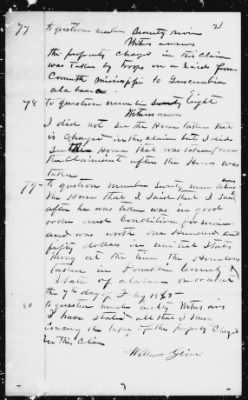 21
77 to question number Seventy seven
Witness answers
the property charged in this claim
was taken by troops on a raid from
Corinth Mississippi to Tuscumbia
alabama.
78 to question number Seventy Eight
Witness answers
I did not see the Horse taken that
is charged in this claim but I did
see the Horse that was taken from
the Claimant after the Horse was
taken
79 to question number Seventy nine
the Horse that I said that I saw
after he was taken was in good
order and Condition for use
and was worth one Hundred and
fifty dollars in united States
at the time the Horse was
taken in Franklin County
State of alabama on or about
the 9th day of
80 to question number eighty Witness
I have stated all that I know
Concerning the taking of the property Charged
in this Claim